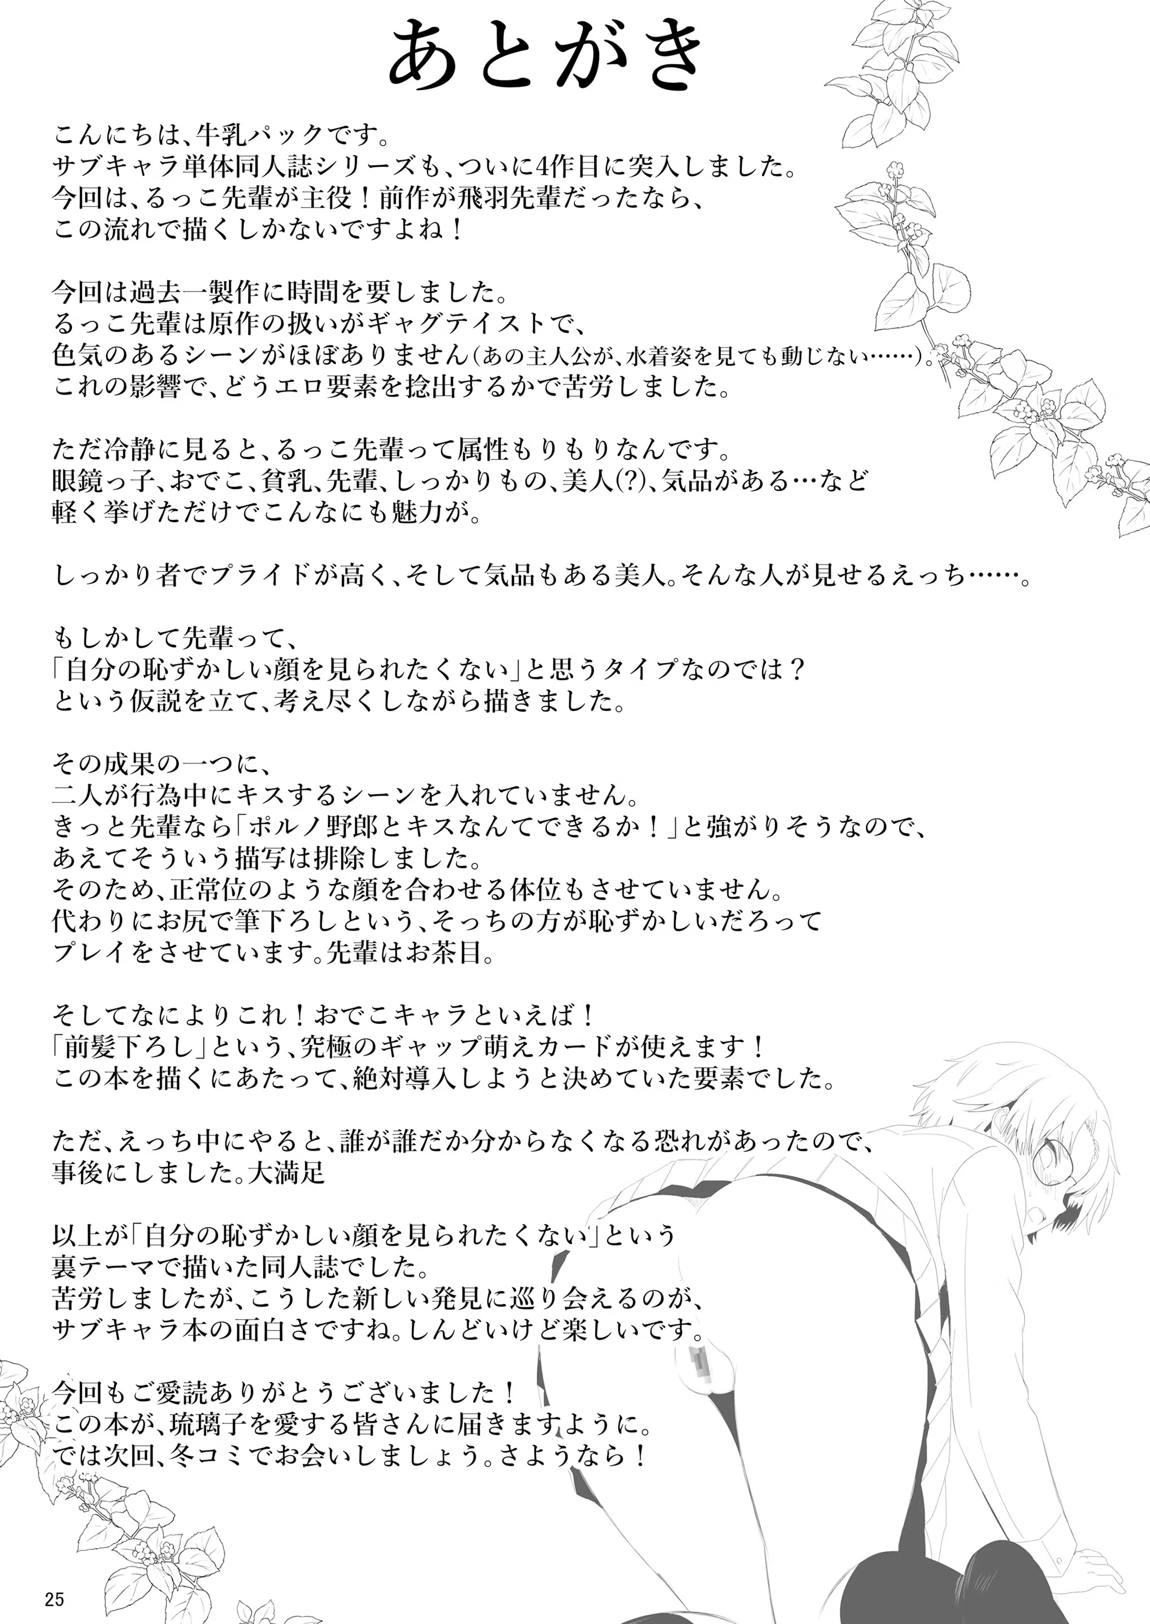 あとがき
こんにちは、牛乳パックです。
サブキャラ単体同人誌シリーズも、ついに4作目に突入しました。
今回は、るっこ先輩が主役！前作が飛羽先輩だったなら、
この流れで描くしかないですよね！
今回は過去一製作に時間を要しました。
るっこ先輩は原作の扱いがギャグテイストで、
色気のあるシーンがほぼありません（あの主人公が、水着姿を見ても動じない……）。
これの影響で、どうエロ要素を捻出するかで苦労しました。
ただ冷静に見ると、るっこ先輩って属性もりもりなんです。
眼鏡っ子、おでこ、貧乳、先輩、しっかりもの、美人(?)、気品がある…など
軽く挙げただけでこんなにも魅力が。
しっかり者でプライドが高く、そして気品もある美人。そんな人が見せるえっち……。
もしかして先輩って、
「自分の恥ずかしい顔を見られたくない」と思うタイプなのでは？
という仮説を立て、考え尽くしながら描きました。
その成果の一つに、
二人が行為中にキスするシーンを入れていません。
きっと先輩なら「ポルノ野郎とキスなんてできるか！」と強がりそうなので、
あえてそういう描写は排除しました。
そのため、正常位のような顔を合わせる体位もさせていません。
代わりにお尻で筆下ろしという、そっちの方が恥ずかしいだろって
プレイをさせています。先輩はお茶目。
そしてなによりこれ！おでこキャラといえば！
「前髪下ろし」という、究極のギャップ萌えカードが使えます！
この本を描くにあたって、絶対導入しようと決めていた要素でした。
ただ、えっち中にやると、誰が誰だか分からなくなる恐れがあったので、
事後にしました。大満足
以上が「自分の恥ずかしい顔を見られたくない」という
裏テーマで描いた同人誌でした。
苦労しましたが、こうした新しい発見に巡り会えるのが、
サブキャラ本の面白さですね。しんどいけど楽しいです。
今回もご愛読ありがとうございました！
この本が、琉璃子を愛する皆さんに届きますように。
では次回、冬コミでお会いしましょう。さようなら！
25